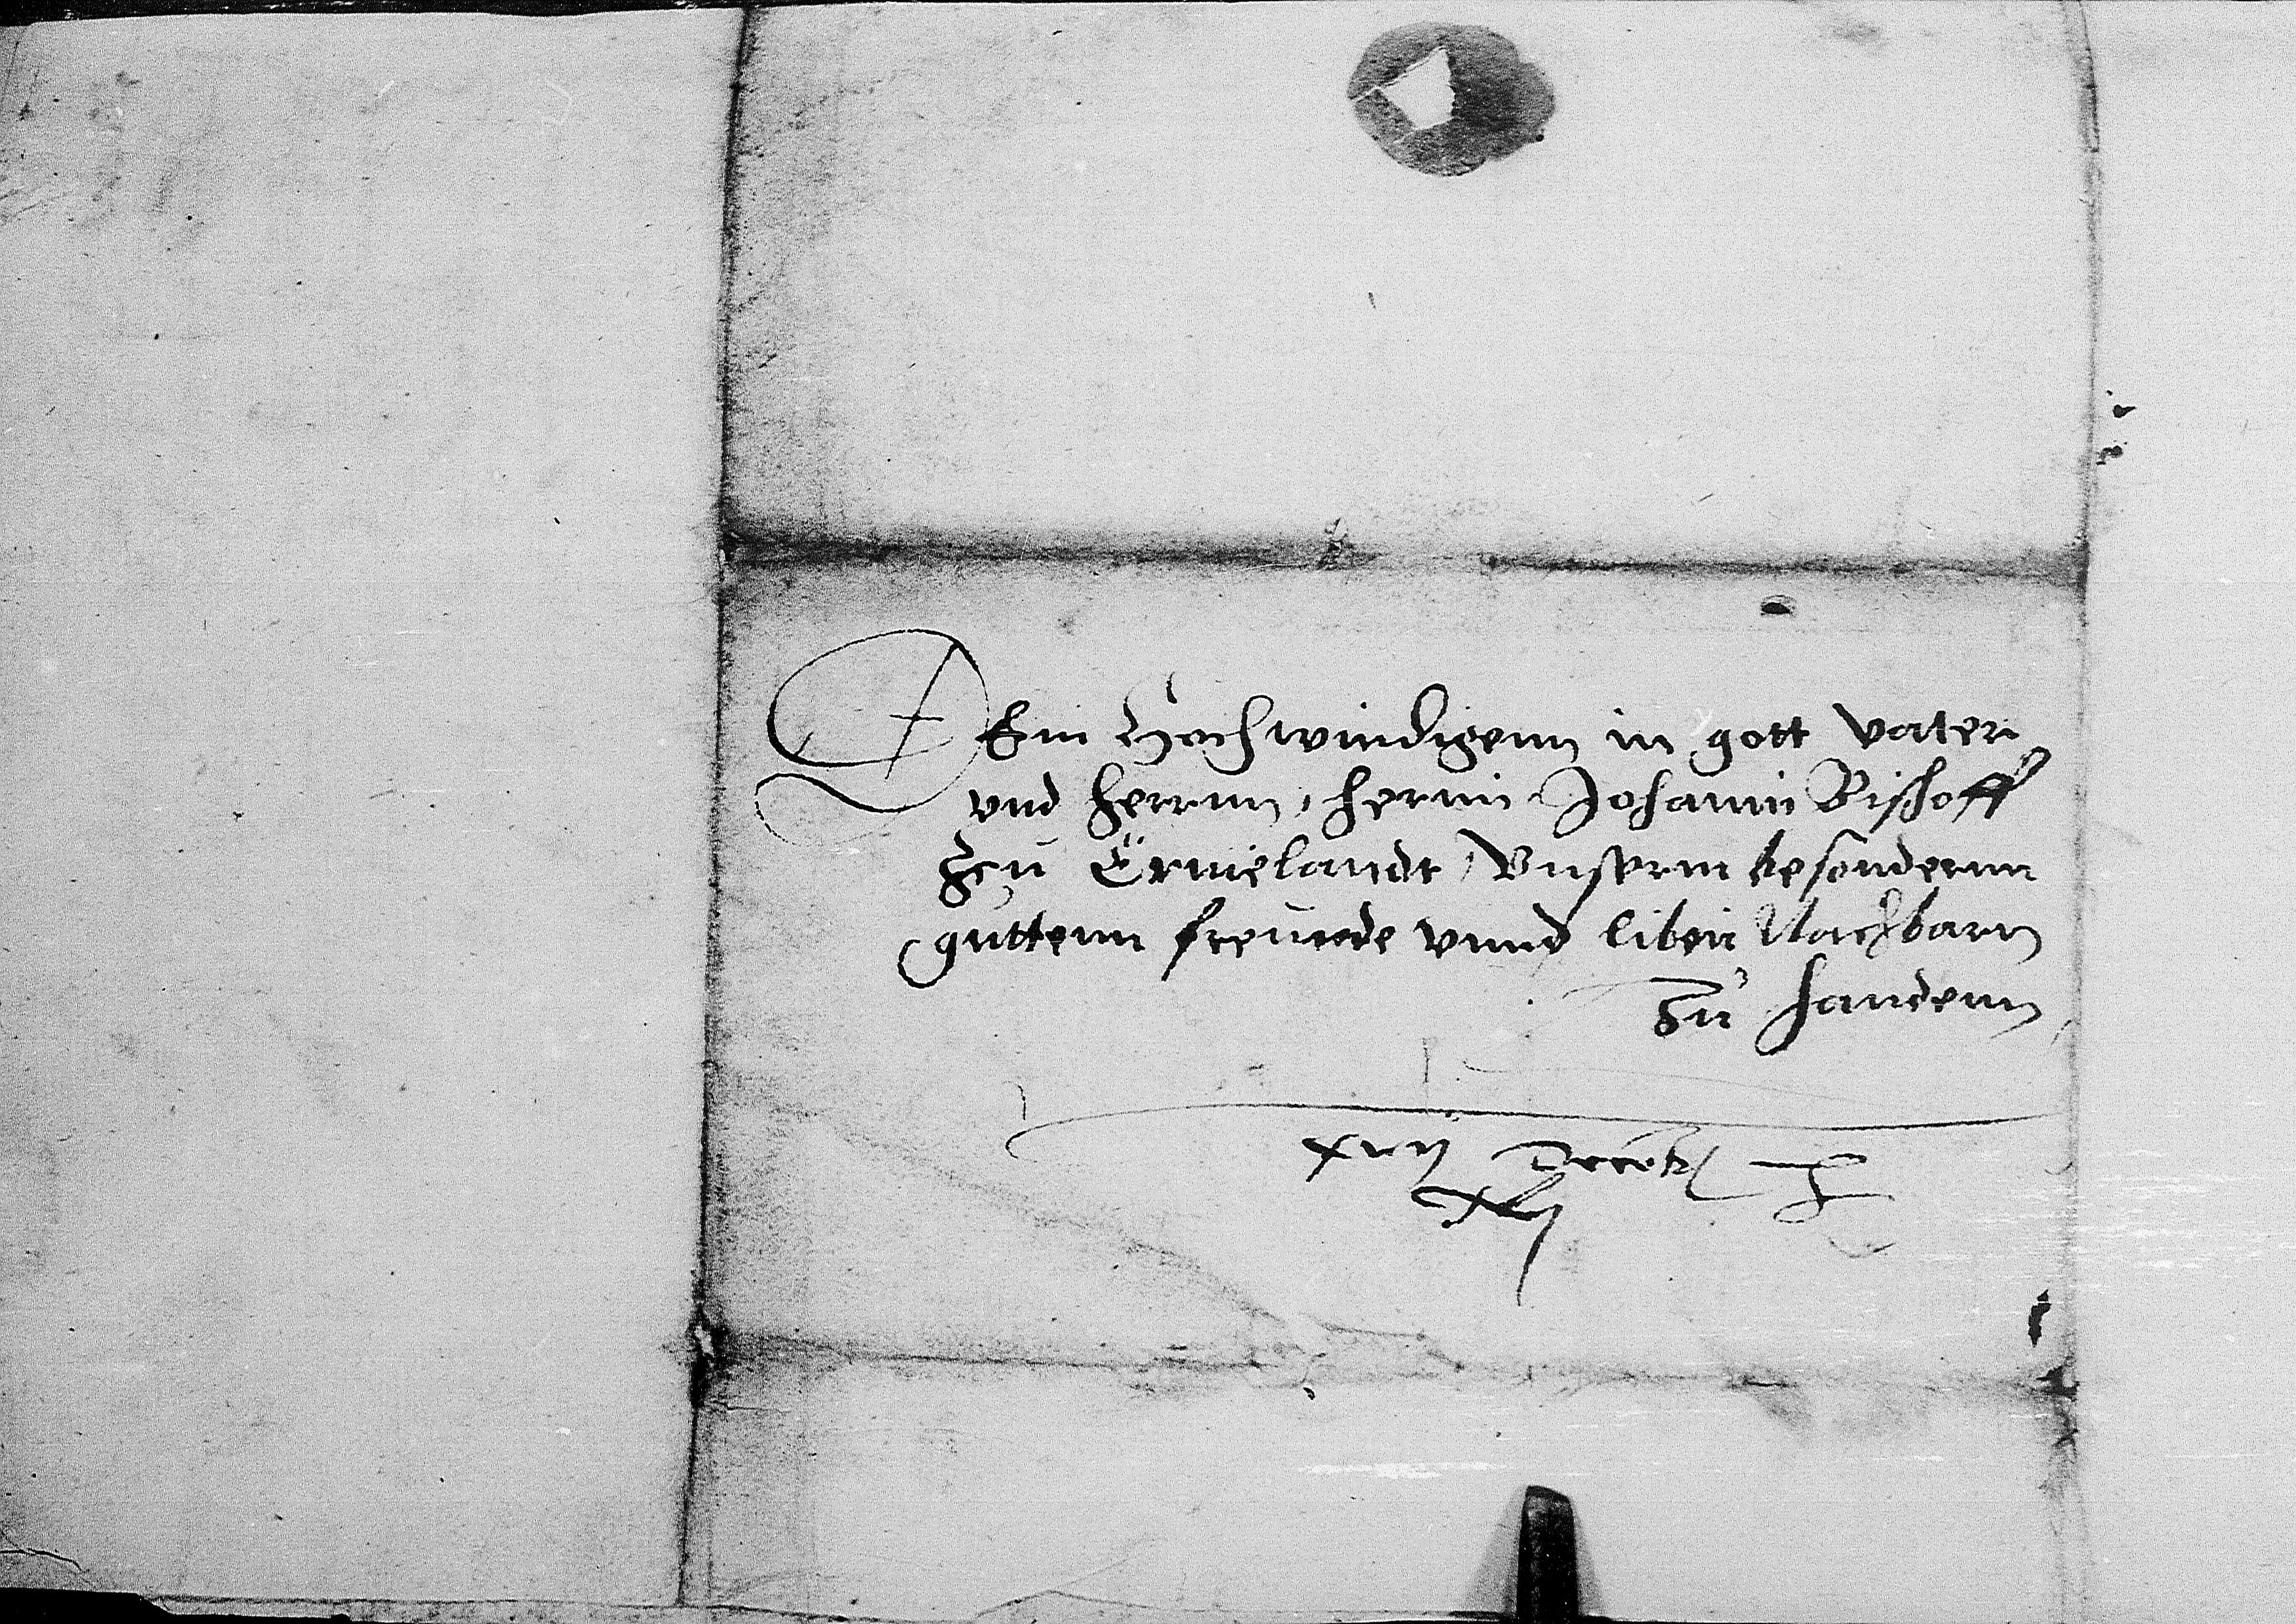 DEm Hochwirdigenn in gott vater
vnd herrnn, herrnn Johannn Bischoff
Zcu Ermelandt, Vnserm besondernn
guttenn freunde vnnd liben Nachbarn
Zu handenn
xvij Decemb